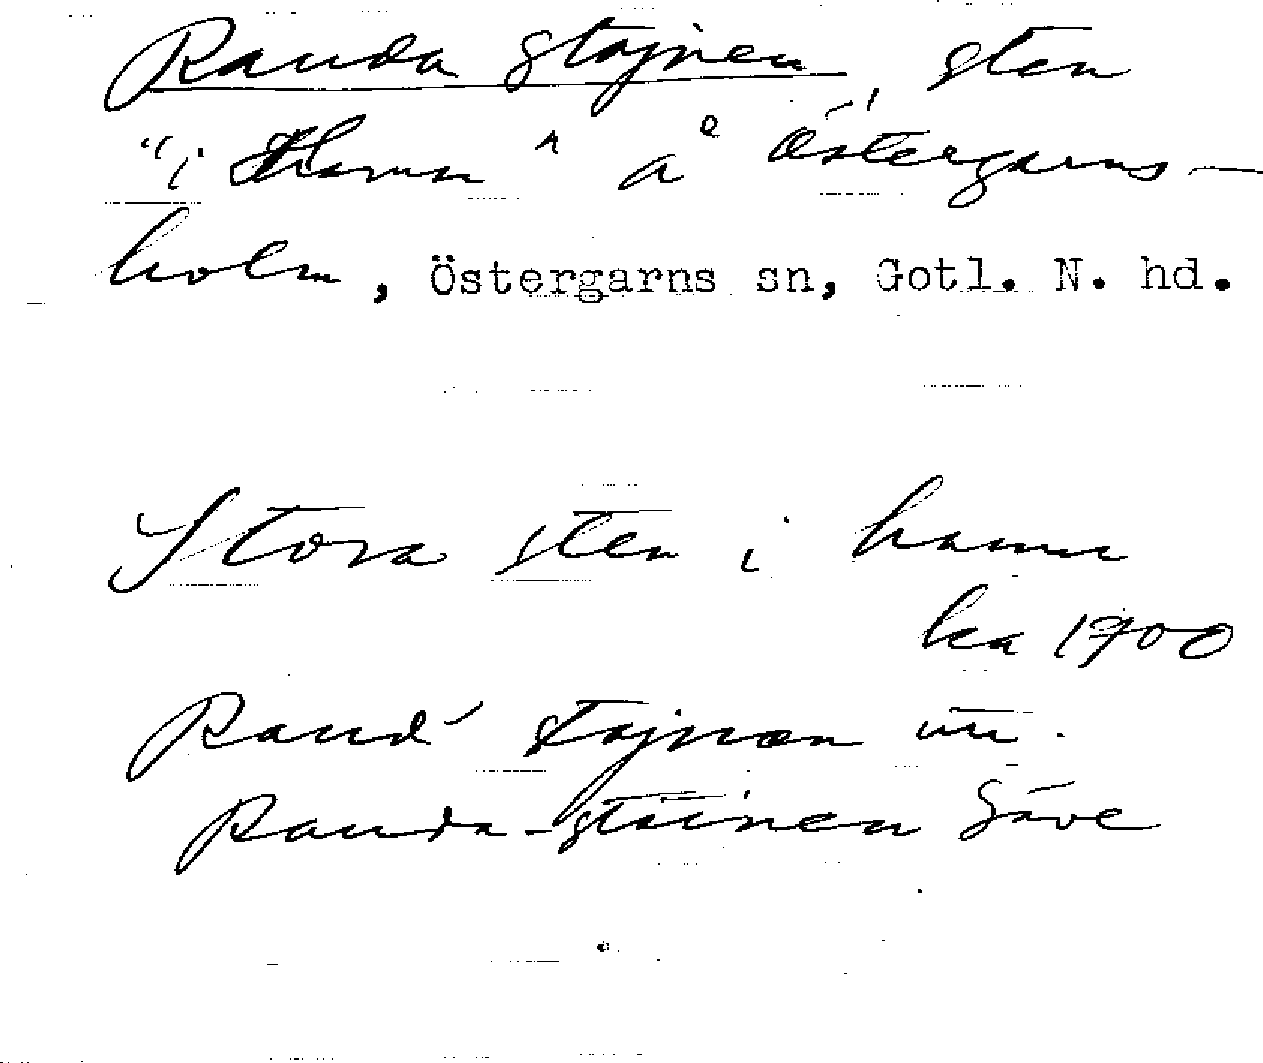 Rauda stajnen, sten
"i Hamn" å Östergarns-
holm, Östergarns sn, Gotl. N. hd.
Stora sten i hamn
ka 1900
Raud' stajnen utt.
Rauda-stäinen Säve